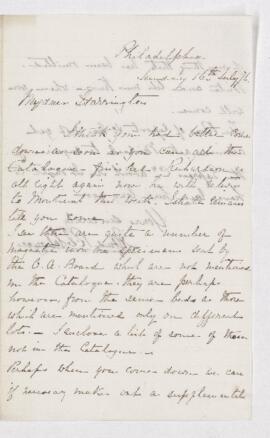 Philadelphia
Sunday 16th July/76
My dear Harrington
I think you had better come
down as soon as you can get the
Catalogue finished. Richardson is
all right again now &
Montreal this week. I shall remain
till you come.
I see there are quite a number of
mass specimens sent by
the C. A. Board which are not mentioned
in the Catalogue. they are perhaps
however from the same beds as those
which are mentioned only on different
lots. I enclose a list of some of them
not in the Catalogue.
Perhaps when you come down we can
if necessary make out a supplemental